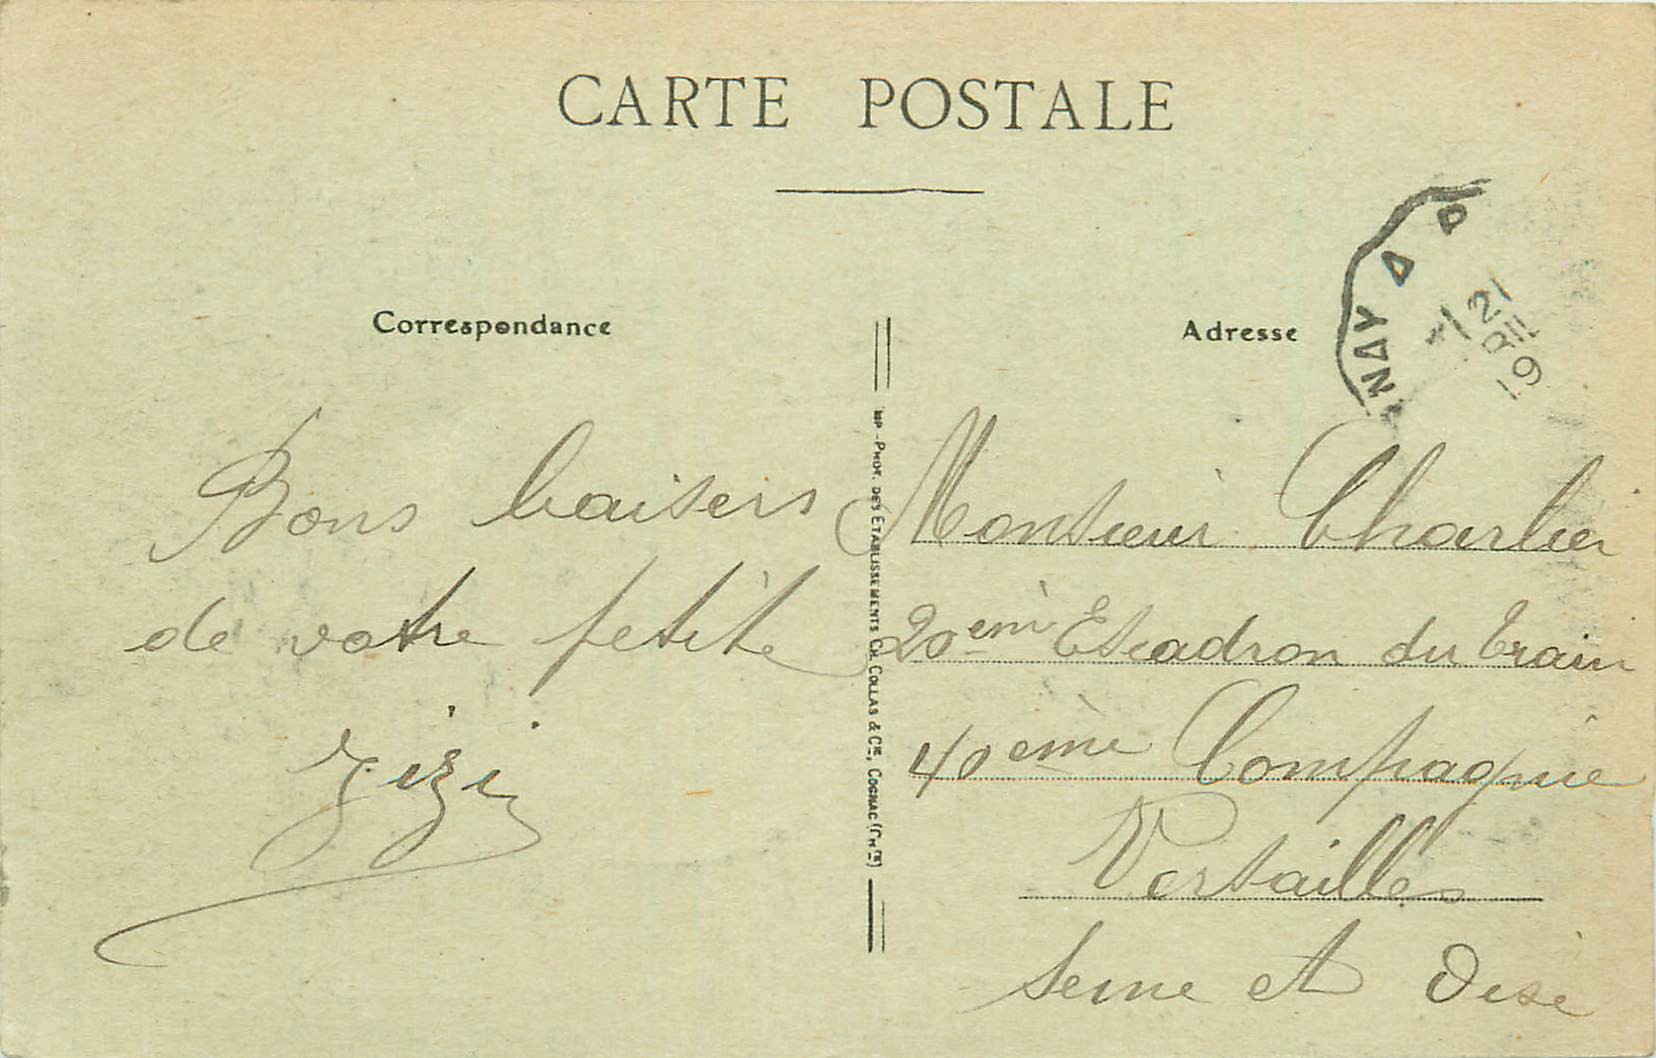 CARTE POSTALE
Correspondance
Adresse
NAY A P
21
RIL
19
Bons baisers
de votre petite
Zizi
IMP-PHOT. DES ETABLISSEMENTS CH. COLLAS & CIE, COGNAC (CHTE)
Monsieur Charlier
20ème Escadron du Train
40ème Compagnie
Versailles
Seine et Oise